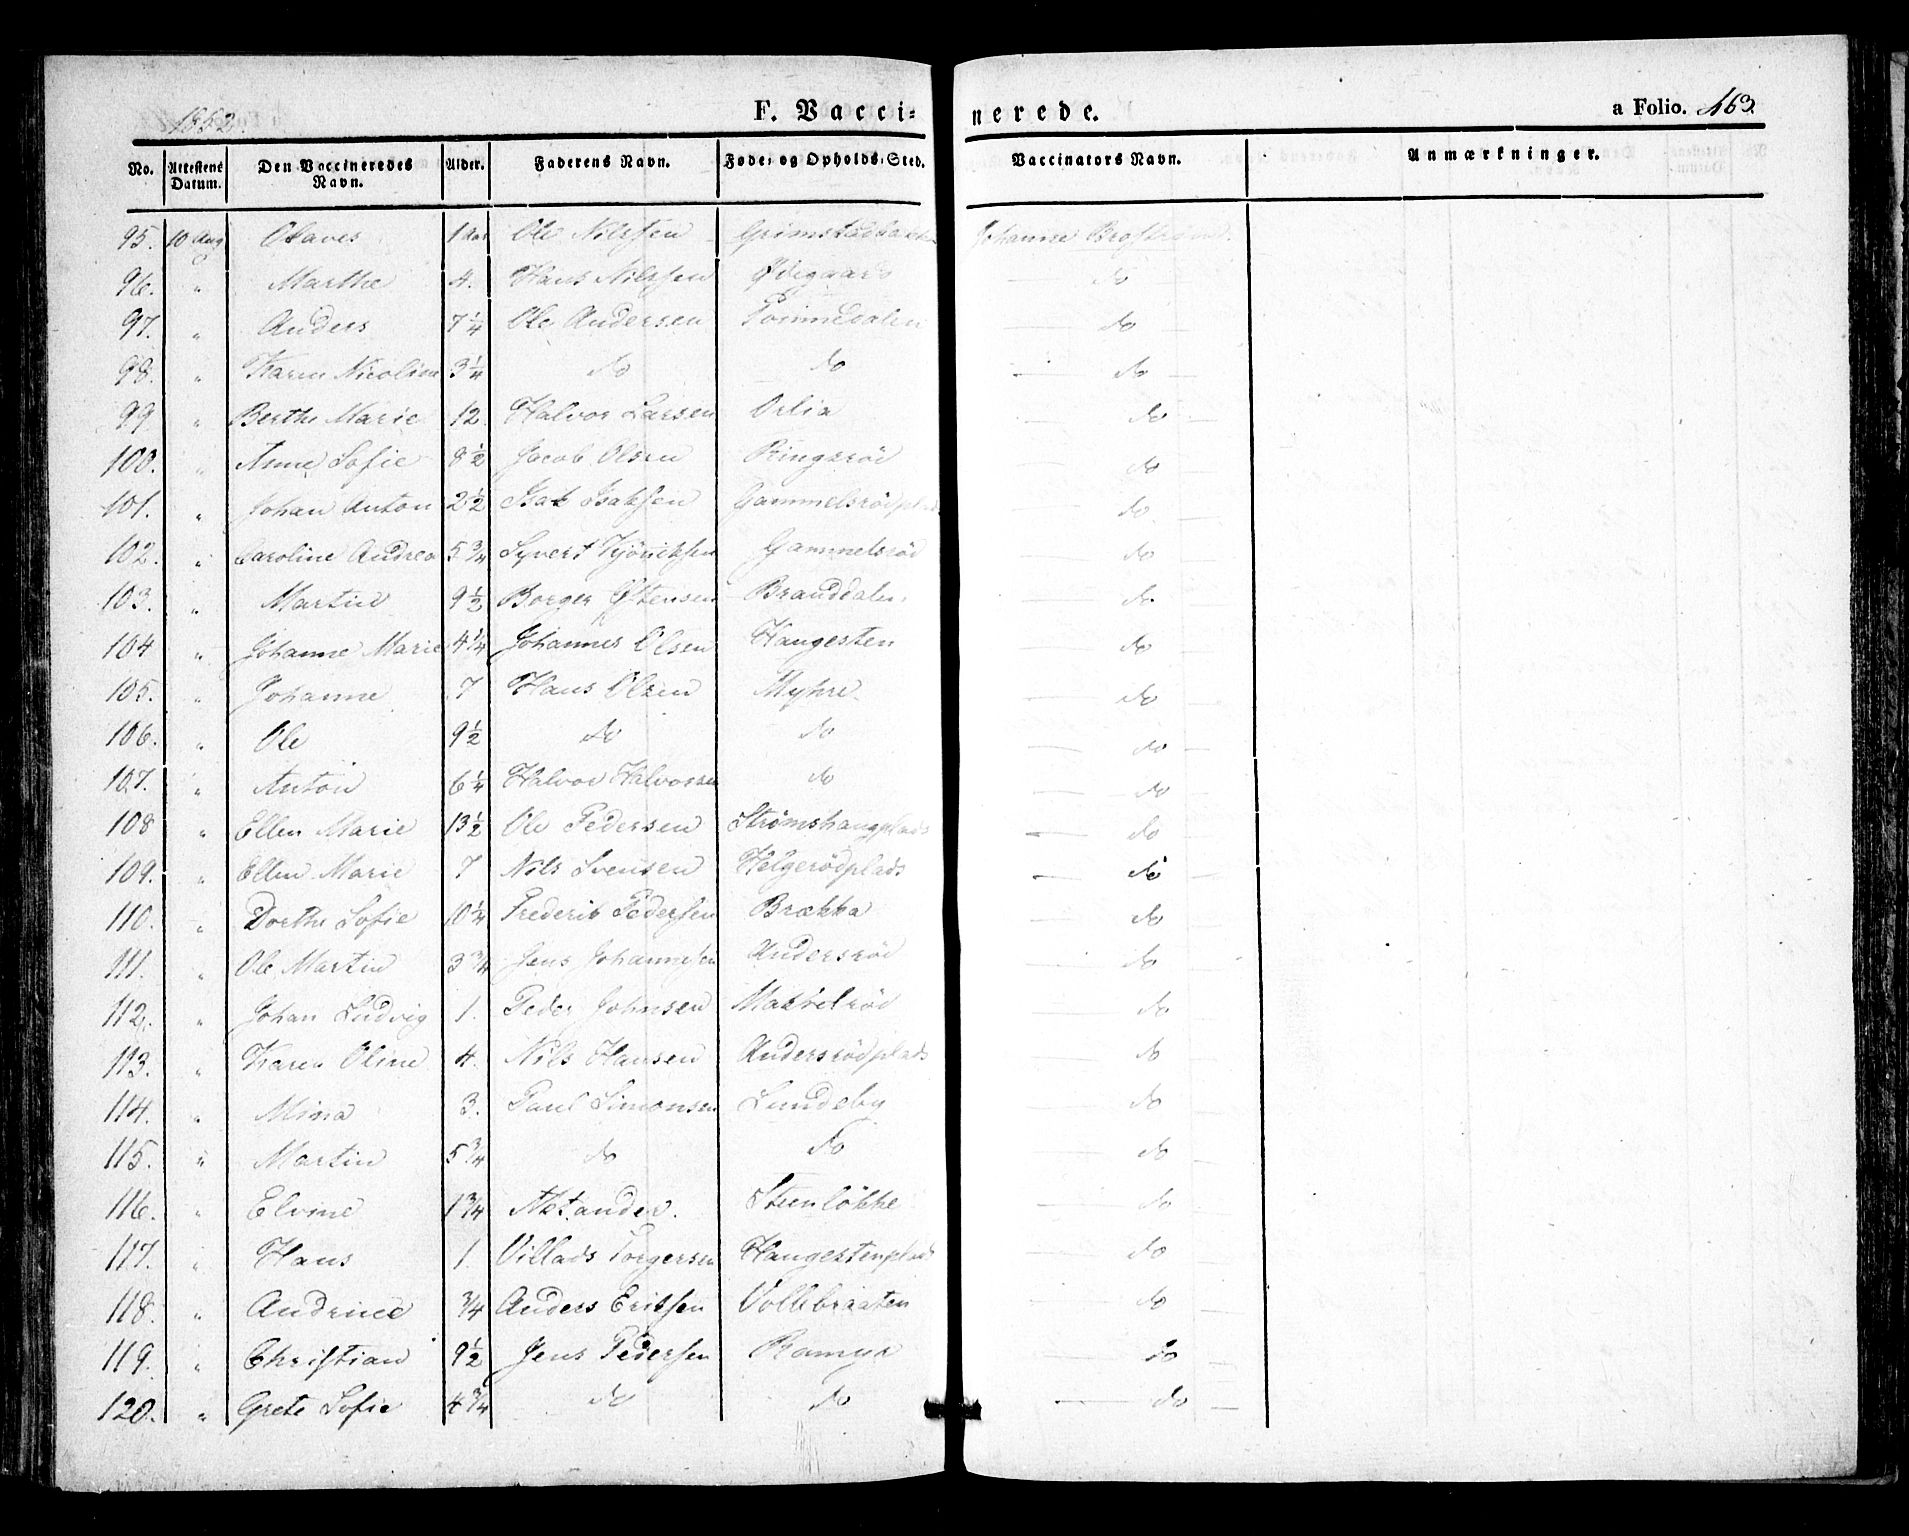 1852. F. Vaccinerede. a Folio. 163.
No. Attestens Datum. Den Vaccineredes Navn. Alder. Faderens Navn. Føde- og Opholds-Sted. Vaccinators Navn. Anmærkninger.
95. 10 Aug Olaves 1 Aar Ole Nilssen Grimstadbakke Johanne
96. " Marthe 4. Hans Nilssen Ødegaard do
97. " Anders 7 1/4 Ole Andersen Tommedalen do
98. " Karen Nicoline 3 1/4 do do do
99 " Berthe Marie 12 Halvor Larsen Orlia do
100. " Anne Sofie 8 1/2 Jacob Olsen Ringsrød do
101. " Johan Anton 2 1/2 Isak Isaksen Gammelsrødplads do
102. " Caroline Andrea 5 3/4 Syvert Gammelsrød do
103. " Martin 9 1/2 Borger Østensen Branddalen. do
104 " Johanne Marie 4 1/4 Johannes Olsen Haugesten do
105. " Johanne 7 Hans Olsen Myhre do
106. " Ole 9 1/2 do do do
107. " Anton 6 1/4 Halvor Halvorsen do do
108 " Ellen Marie 13 1/2 Ole Pedersen Strømshaugplads do
109. " Ellen Marie 7 Nils Svensen Helgerødplads do
110. " Dorthe Sofie 10 1/4 Frederik Pedersen Brækka do
111. " Ole Martin 3 3/4 Jens Johannesen Andersrød do
112. " Johan Ludvig 1. Peder Johnsen Makrelrød do
113. " Karen Oline 4. Nils Hansen Andersrødplads do
114. " Mina 3. Paul Simonsen Lundeby do
115. " Martin 5 3/4 do do do
116. " Elvine 1 3/4 Steenløkke do
117. " Hans 1. Villads Torgersen Haugestenplads do
118. " Andrine 3/4 Anders Eriksen Vollebraaten do
119. " Christian 9 1/2 Jens Pedersen do
120. " Grete Sofie 4 3/4 do do do